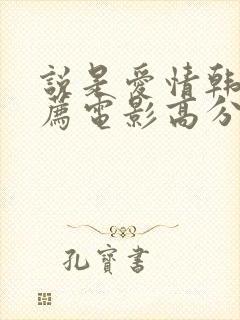 說是愛情韓
薦電影高分
孔寶書